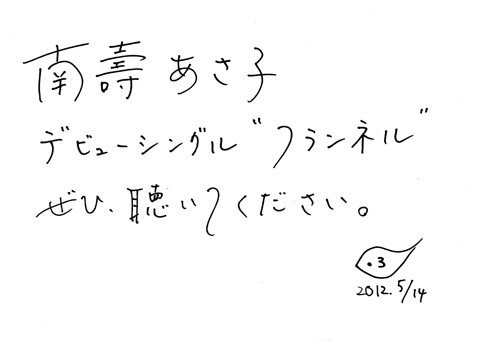 南壽あさ子
デビューシングル"フランネル"
ぜひ、聴いてください。
.3
2012.5/14